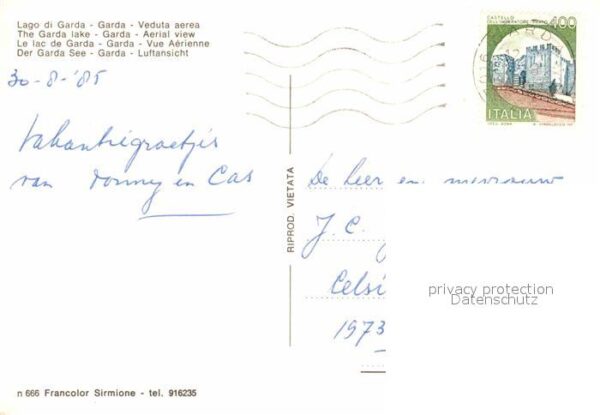 Lago di Garda - Garda - Veduta aerea
The Garda lake - Garda - Aerial view
Le lac de Garda - Garda - Vue Aérienne
Der Garda See - Garda - Luftansicht
30-8-'85
Vakantiegroetjes
van Conny en Cas
De Heer en mevrouw
J. C.
Celsi
1973
RIPROD. VIETATA
CASTELLO
400
ITALIA
privacy protection
Datenschutz
n 666 Francolor Sirmione - tel. 916235